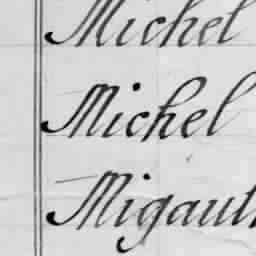 Michel
Michel
Migault